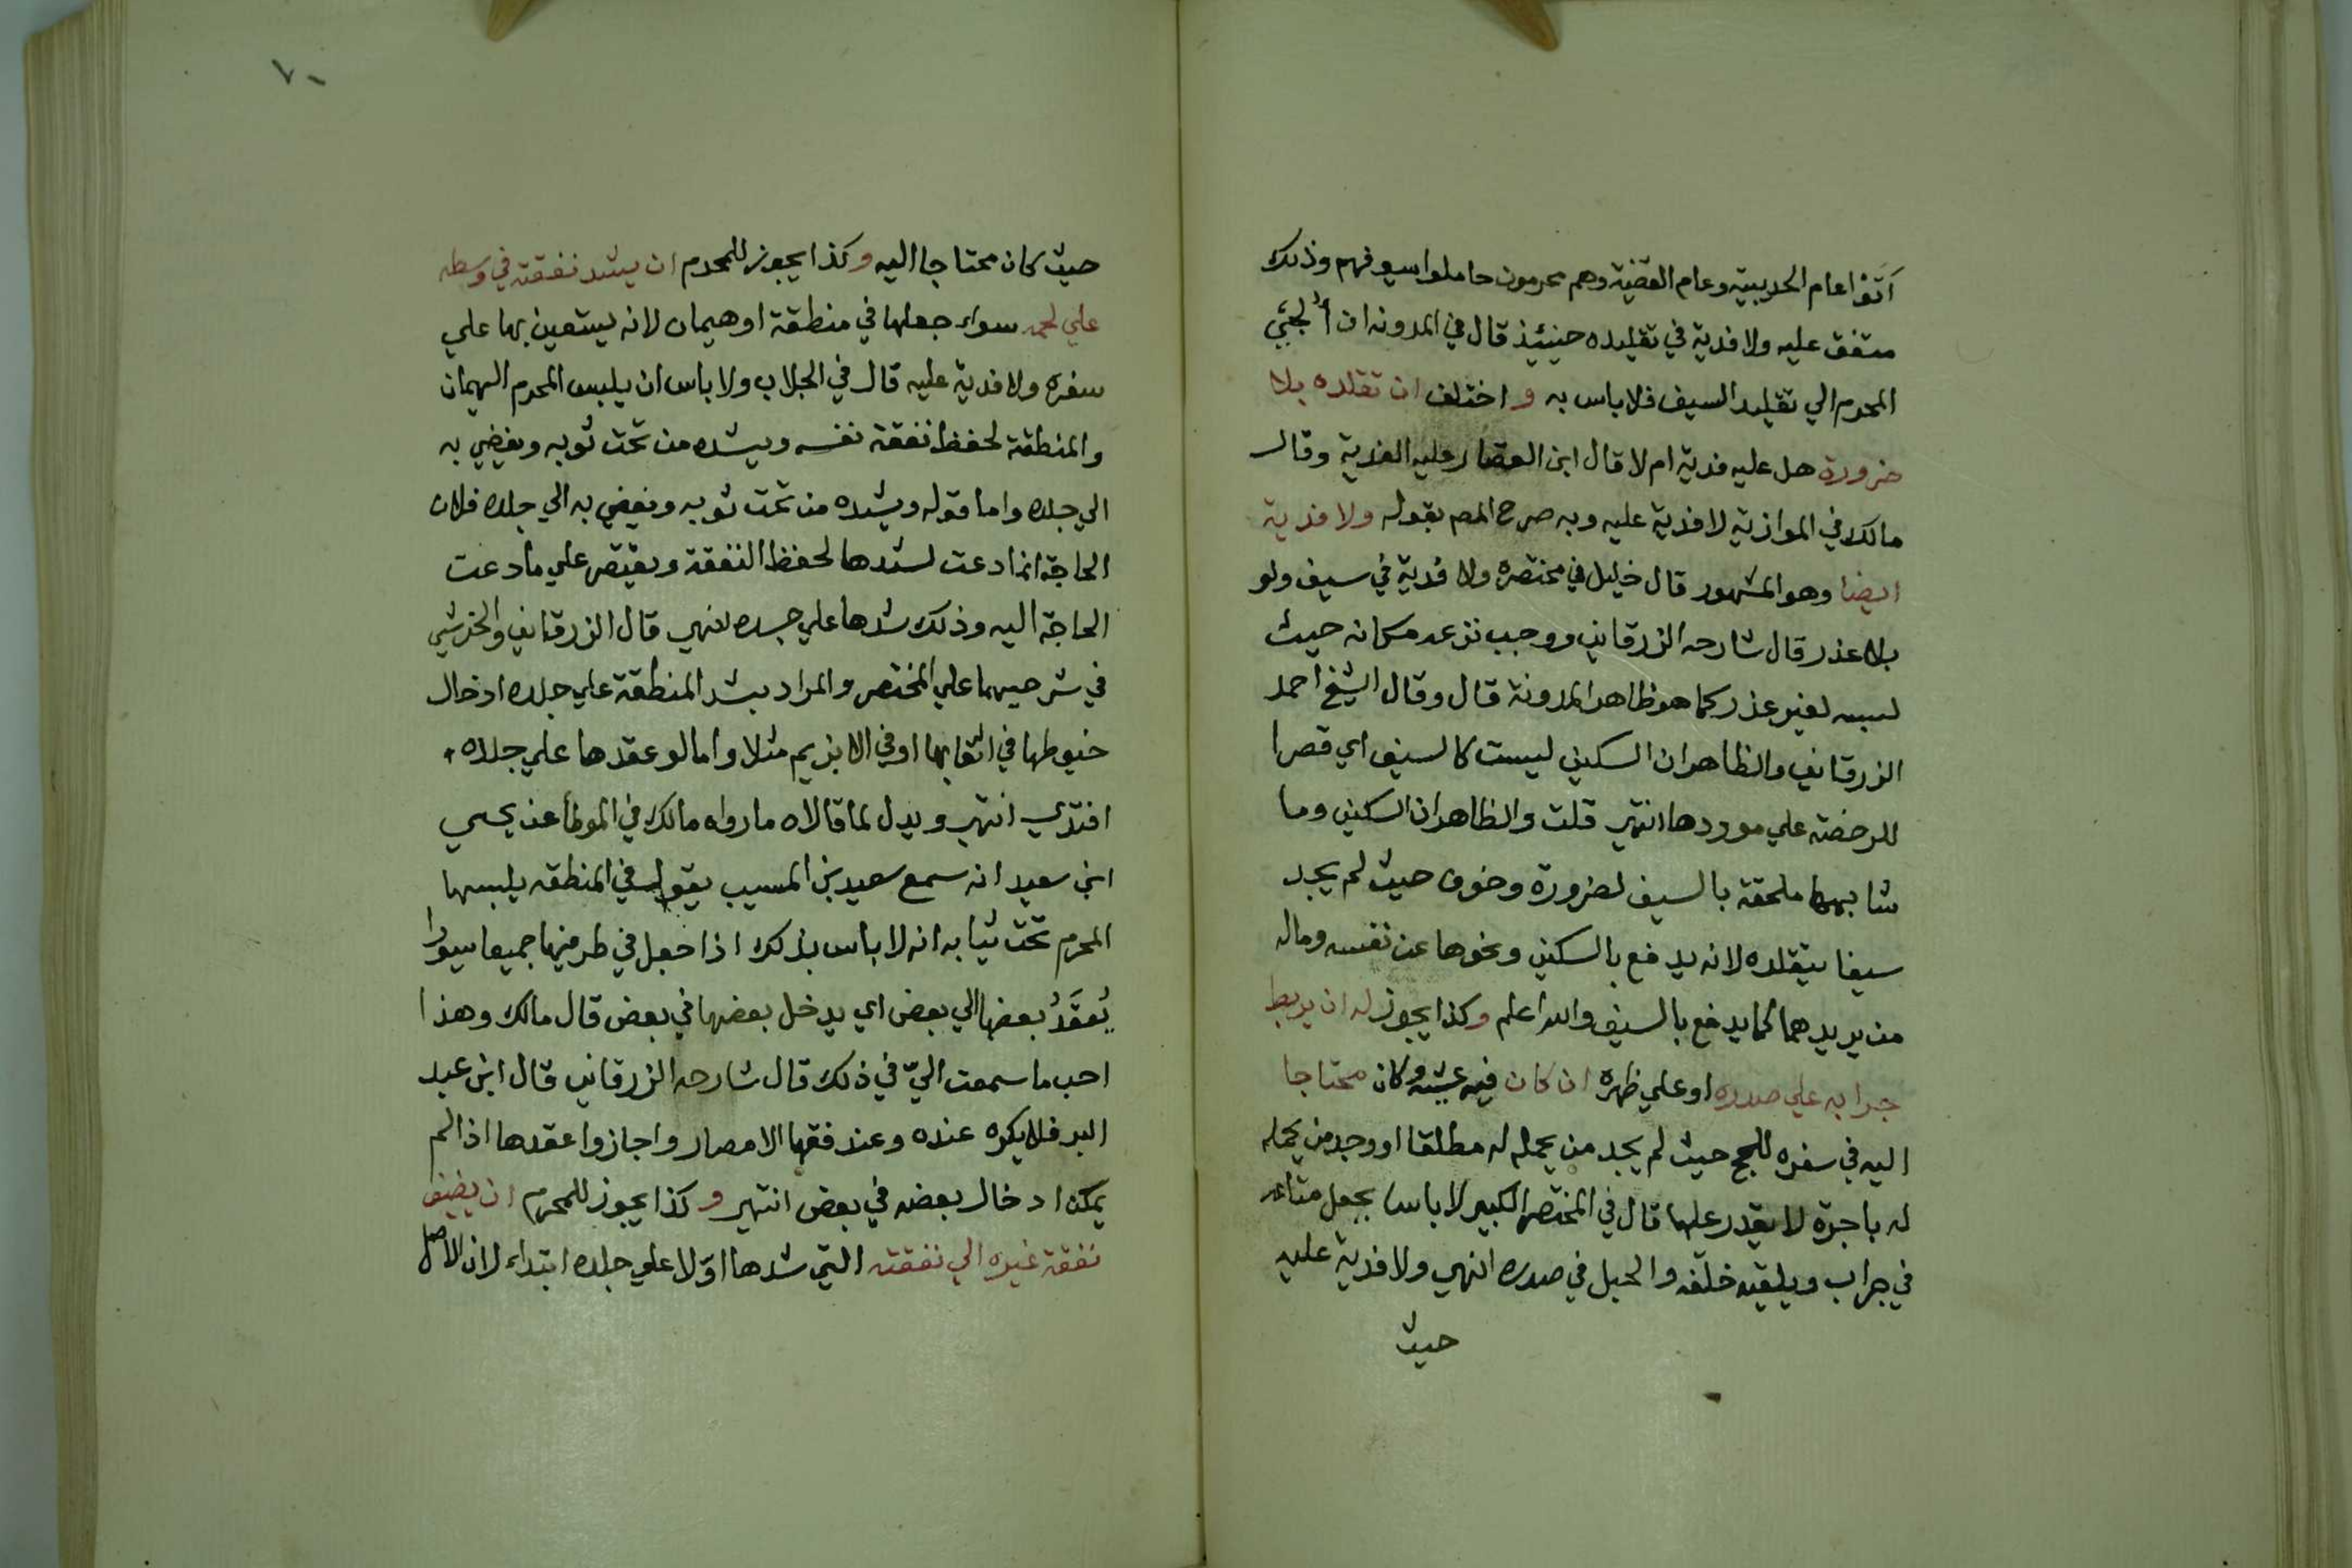 أتوا عام الحديبية وعام القضية وهم محرمون حاملوا سيوفهم وذلك
متفق عليه ولا فدية في تقليده حينئذ قال في المدونه ان ألجئ
المحرم الي تقليد السيف فلا باس به واختلف ان تقلده بلا
ضرورة هل عليه فدية ام لا قال ابن القصار عليه الفدية وقال
مالك في الموازية لا فدية عليه وبه صرح المص بقوله ولا فدية
ايضا وهو المشهور قال خليل في مختصره ولا فدية في سيف ولو
بلا عذر قال شارحه الزرقاني ووجب نزعه مكانه حيث
لبسه لغير عذر كما هو ظاهر المدونة قال وقال الشيخ احمد
الزرقاني والظاهر ان السكين ليست كالسيف اي قصرا
للرخصة علي موردها انتهي قلت والظاهر ان السكين وما
شابهها ملحقة بالسيف لضرورة وخوف حيث لم يجد
سيفا يتقلده لانه يدفع بالسكين ونحوها عن نفسه وماله
من يريدهما كما يدفع بالسيف والله اعلم وكذا يجوز له ان يربط
جرابه علي صدره او علي ظهره ان كان فيه عيشه وكان محتاجا
اليه في سفره للحج حيث لم يجد من يحمله له مطلقا او وجد من يحمله
له باجرة لا يقدر عليها قال في المختصر الكبير لا باسا بجعل متاعه
في جراب ويلقيه خلفه والحبل في صدره انتهي ولا فدية عليه
حيث
٧٠
حيث كان محتاجا اليه وكذا يجوز للمحرم ان يشد نفقته في وسطه
علي لحمه سواء جعلها في منطقة او هيمان لانه يستعين بها علي
سفره ولا فدية عليه قال في الجلاب ولا باس ان يلبس المحرم الهيمان
والمنطقة لحفظ نفقة نفسه ويشده من تحت ثوبه ويفيضي به
الي جلده واما قوله ويشده من تحت ثوبه ويفيضي به الي جلده فلان
الحاجة انما دعت لشدها لحفظ النفقة ويقتصر علي ما دعت
الحاجة اليه وذلك شدها علي جسده انتهي قال الزرقاني والخرشي
في شرحيهما علي المختصر والمراد بشد المنطقة علي جلده ادخال
خيوطها في اثقابها او في الابزيم مثلا واما لو عقدها علي جلده
افتدي انتهي ويدل لما قالاه ما رواه مالك في الموطأ عن يحيي
ابن سعيد انه سمع سعيد بن المسيب يقول في المنطقه يلبسها
المحرم تحت ثيابه انه لا باس بذلك اذا جعل في طرفيها جميعا سيورا
يُعقَدُ بعضها الي بعض اي يدخل بعضها في بعض قال مالك وهذا
احب ما سمعت اليّ في ذلك قال شارحه الزرقاني قال ابن عبد
البر فلا يكره عنده وعند فقها الامصار واجازوا عقدها اذا لم
يمكن ادخال بعضه في بعض انتهي وكذا يجوز للمحرم ان يضيف
نفقة غيره الي نفقته التي شدها اوّلا علي جلده ابتداء لان الاصل